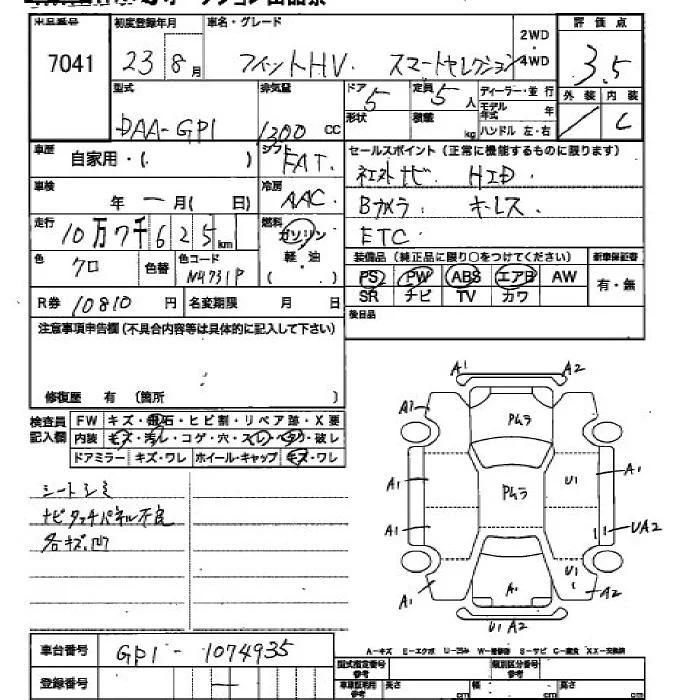 出品番号 初度登録年月 車名・グレード 評価点
7041 23 8月 フィットHV. スマートセレクション 2WD 4WD 3.5
型式 排気量 ドア 5 定員 5人 ディーラー・並行 外装 内装
DAA-GP1 1300 CC 形状 積載 kg モデル年式 年 ハンドル 左・右 C
車歴 自家用・( ) シフト FAT. セールスポイント(正常に機能するものに限ります)
車検 年 ー 月( 日) 冷房 AAC. 社外ナビ. HID.
走行 10万7千625km 燃料 ガソリン Bカメラ. キーレス.
軽・油 ETC
色 クロ 色替 色コード NH731P ( ) 装備品(純正品に限り○をつけてください) 新車保証書
PS PW ABS エアB AW 有・無
R券 10810 円 名変期限 月 日 SR ナビ TV カワ
注意事項申告欄(不具合内容等は具体的に記入して下さい) 後日品
修復歴 有(箇所 )
検査員記入欄 FW キズ・飛石・ヒビ割・リペア跡・X要
内装 キズ・汚レ・コゲ・穴・スレ・ヘタリ・破レ
ドアミラー キズ・ワレ ホイール・キャップ キズ・ワレ
シートシミ
ナビタッチパネル不良
各キズ.凹
A1 A2
A1 Pムラ A1
A1 Pムラ U1 A1
A1 UA2
A1 A1 U1 A2
U1 A2
車台番号 GP1-1074935
A-キズ E-エクボ U-凹み W-補修跡 S-サビ C-腐食 XX-交換済
登録番号 ー
型式指定番号 参考 類別区分番号 参考
車庫証明用 参考 長さ cm 幅 cm 高さ cm